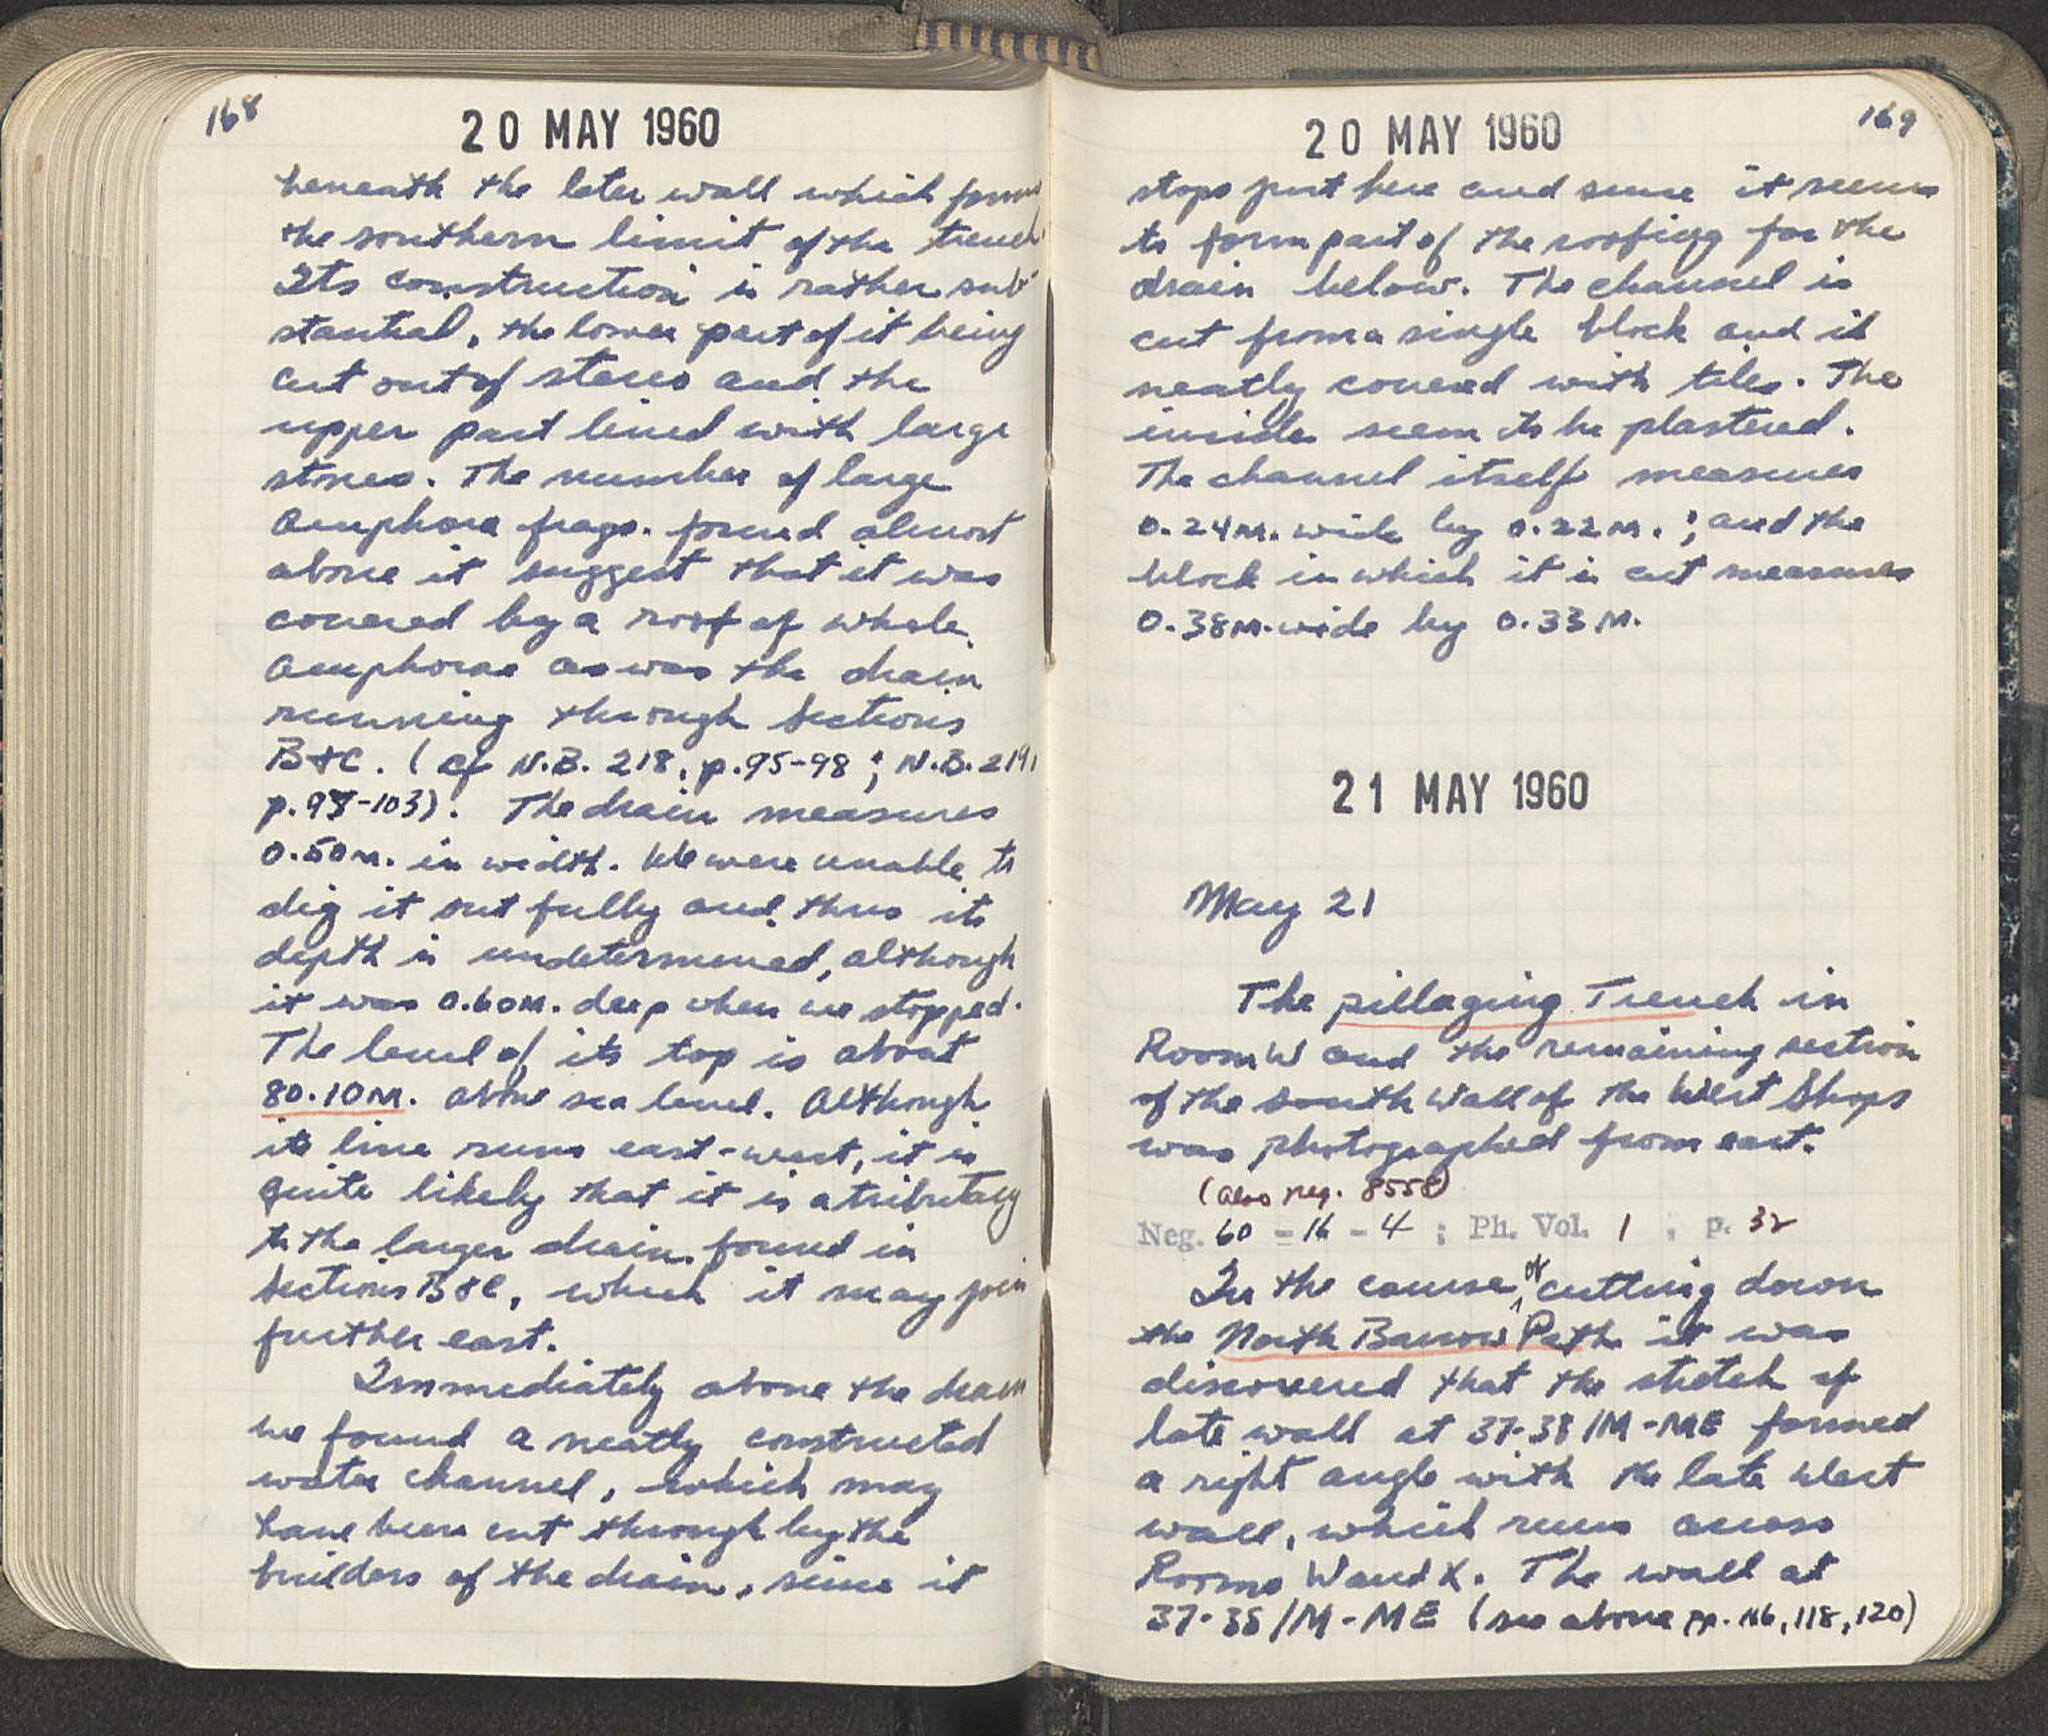 168
20 MAY 1960
beneath the later wall which forms
the southern limit of the trench.
Its construction is rather sub-
stantial, the lower part of it being
cut out of stereo and the
upper part lined with large
stones. The number of large
Amphora frags. found almost
above it suggest that it was
covered by a roof of whole
Amphorae as was the drain
running through Sections
B+C. (cf N.B. 218, p.95-98; N.B. 219,
p.98-103). The drain measures
0.50m. in width. We were unable to
dig it out fully and thus its
depth is undetermined, although
it was 0.60m. deep when we stopped.
The level of its top is about
80.10m. above sea level. Although
its line runs east-west, it is
quite likely that it is a tributary
to the larger drain found in
Sections B+C, which it may join
further east.
Immediately above the drain
we found a neatly constructed
water channel, which may
have been cut through by the
builders of the drain, since it
169
20 MAY 1960
stops just here and since it seems
to form part of the roofing for the
drain below. The channel is
cut from a single block and it
neatly covered with tiles. The
inside seem to be plastered.
The channel itself measures
0.24m. wide by 0.22m.; and the
block in which it is cut measures
0.38m. wide by 0.33m.
21 MAY 1960
May 21
The pillaging Trench in
Room W and the remaining section
of the south Wall of the West Shops
was photographed from east.
(Also neg. 8558)
Neg. 60 - 16 - 4 ; Ph. Vol. 1 , p. 32
In the course of cutting down
the North Barrow Path it was
discovered that the stretch of
late wall at 37-38/M-ME formed
a right angle with the late West
wall, which runs across
Rooms W and X. The wall at
37-38/M-ME (see above pp. 116, 118, 120)